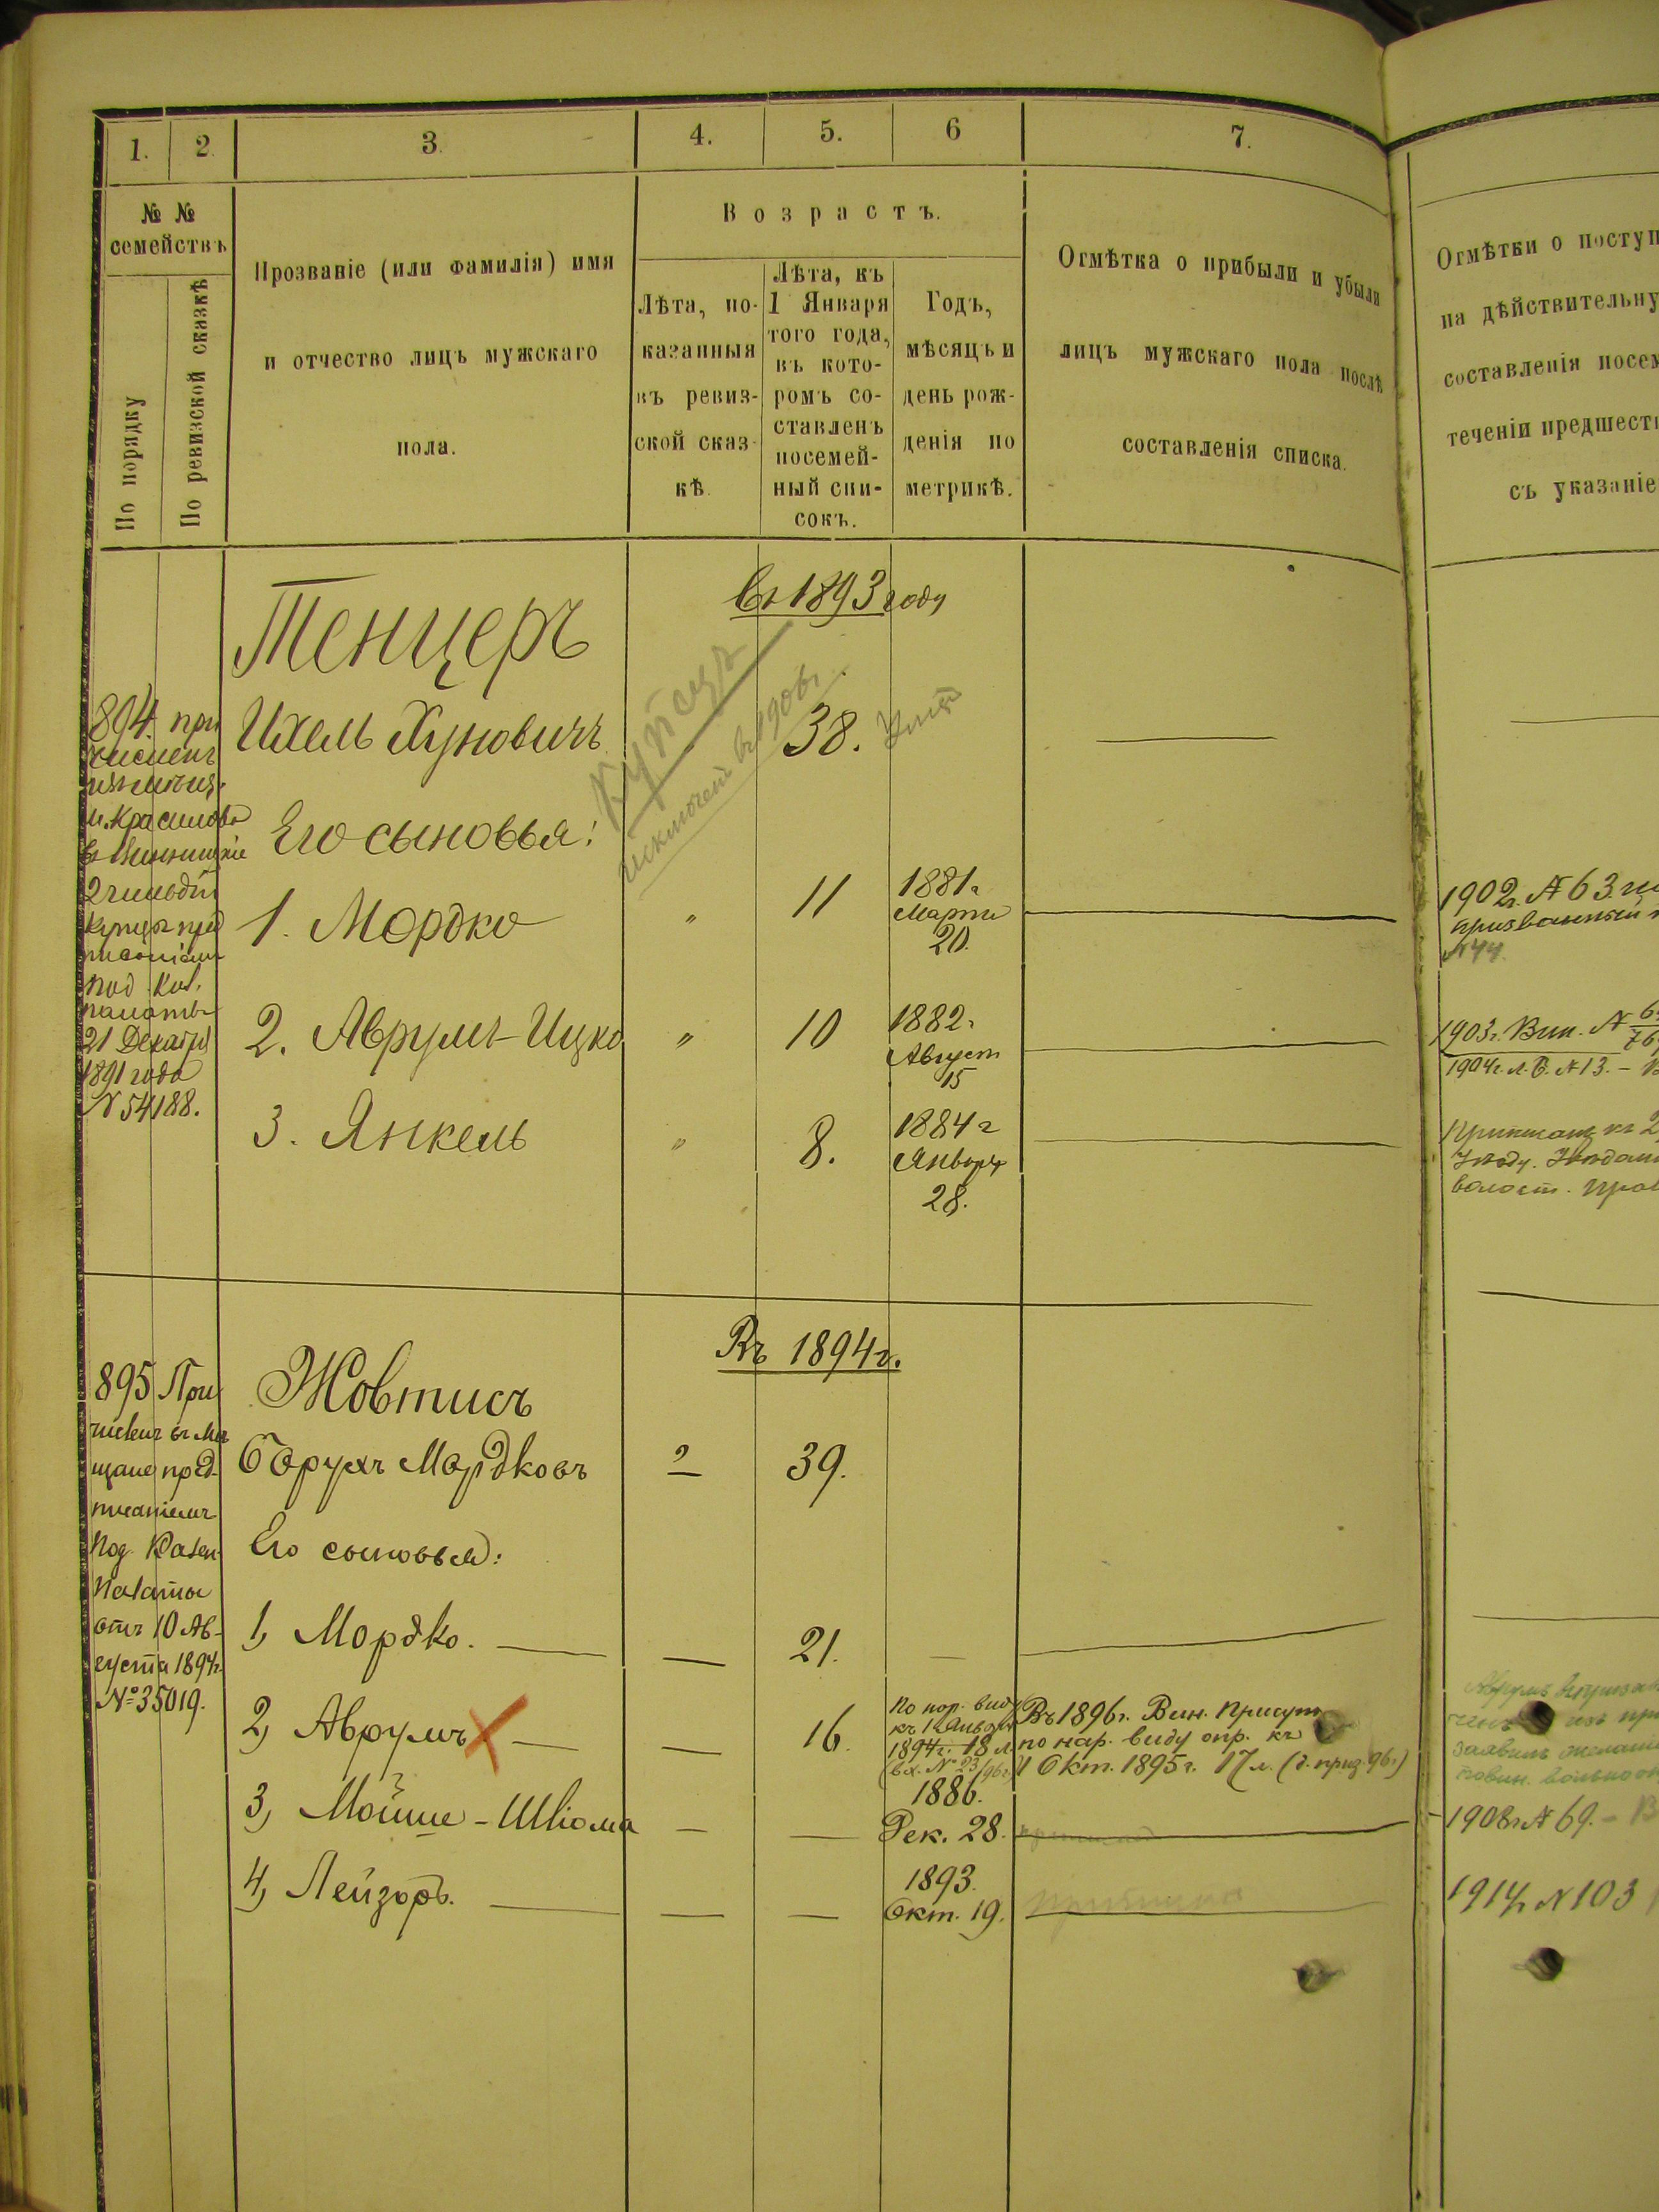 1.
2
3.
4.
5.
6
7.
№ №
семействъ
По порядку
По ревизской сказкѣ
Прозваніе (или фамилія) имя
и отчество лицъ мужскаго
пола.
Возрастъ.
Лѣта, по-
казанныя
въ ревиз-
ской сказ-
кѣ.
Лѣта, къ
1 Января
того года,
въ кото-
ромъ со-
ставленъ
посемей-
ный спи-
сокъ.
Годъ,
мѣсяцъ и
день рож-
денія по
метрикѣ.
Отмѣтка о прибыли и убыли
лицъ мужскаго пола послѣ
составленія списка.
Отмѣтки о поступ
на дѣйствительну
составленія посем
теченіи предшест
съ указаніе
Въ 1893 году
Тенцеръ
894. при
численъ
м. Красилова
въ Винницкіе
2 гильдіи
купцы пред
писаніемъ
Под. Каз.
палаты
21 Декабря
1891 года
№ 54188.
Ихель Хуновичъ
38.
Купецъ
исключен въ 1906 г.
Его сыновья:
1. Мордко " 11 1881 г
Марта
20.
1902 г. № 63
призванный
№ 44.
2. Аврумъ-Ицко " 10 1882 г
Август
15
1903 г. Вин. №
1904 г. № 13. –
3. Янкель " 8. 1884 г
Января
28.
Въ 1894 г.
895 При
численъ въ Мѣ
щане пред-
писаніемъ
Под. Казен.
Палаты
отъ 10 Ав-
густа 1894 г.
№ 35019.
Жовтисъ
Борухъ Мордковъ 39.
Его сыновья:
1, Мордко. — — 21. —
2, Аврумъ — — 16.
По нар. виду
къ 1 Января
1894 г. 18 л.
(вх. № 23/96 г.)
Въ 1896 г. Вин. Присут
по нар. виду опр. къ
1 Окт. 1895 г. 17 л. (д. приз. 96 г.)
3, Мойше-Шліома — — 1886.
Дек. 28.
1908 г. № 69. –
4, Лейзоръ. — — — 1893.
Окт. 19.
1914 г. № 103